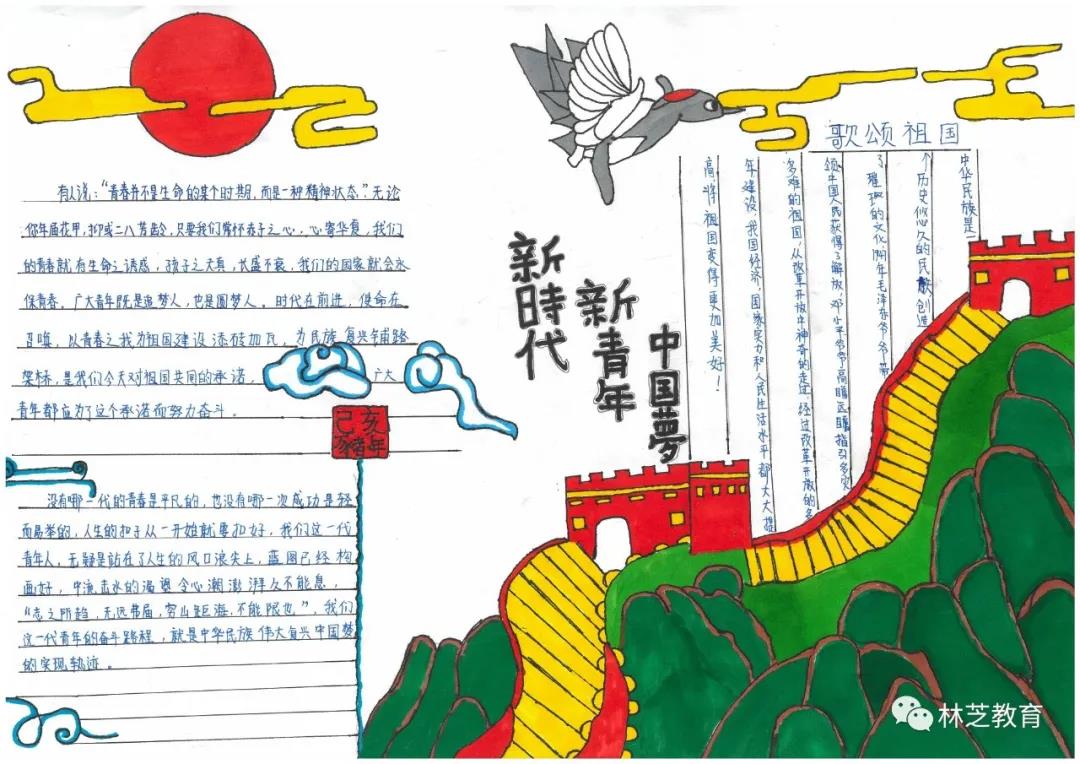 有人说："青春并不是生命的某个时期,而是一种精神状态".无论
你年届花甲,抑或二八芳龄,只要我们常怀赤子之心,心寄华夏,我们
的青春就有生命之诱惑,孩子之天真,长盛不衰,我们的国家就会永
保青春。广大青年既是追梦人,也是圆梦人。时代在前进,使命在
召唤,以青春之我为祖国建设添砖加瓦,为民族复兴铺路
架桥,是我们今天对祖国共同的承诺,广大
青年都应为了这个承诺而努力奋斗。
己亥
豬年
没有哪一代的青春是平凡的,也没有哪一次成功是轻
而易举的,人生的扣子从一开始就要扣好,我们这一代
青年人,无疑是站在了人生的风口浪尖上,蓝图已经构
画好,中流击水的渴望令心潮澎湃久不能息,
"志之所趋,无远弗届,穷山距海,不能限也",我们
这一代青年的奋斗路程,就是中华民族伟大复兴中国梦
的实现轨迹。
新時代
新青年
中国夢
歌颂祖国
中华民族是一
个历史悠久的民族,创造
了璀璨的文化1949年毛泽东爷爷带
领中国人民获得了解放,邓小平爷爷高瞻远瞩指引多灾
多难的祖国,从改革开放中神奇的走过经过改革开放的多
年建设,我国经济,国家实力和人民生活水平都大大提
高,将祖国变得更加美好!
林芝教育